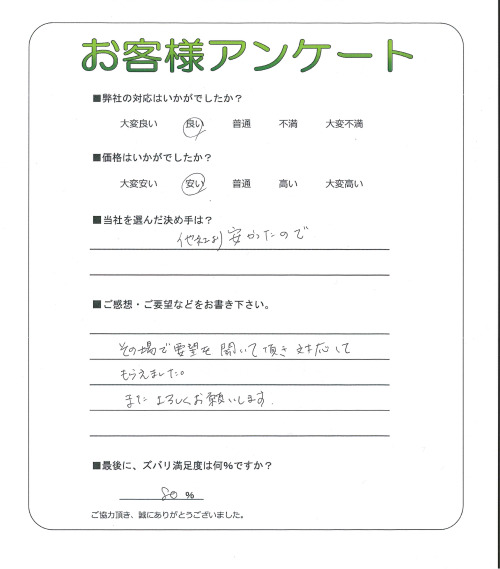 お客様アンケート
■弊社の対応はいかがでしたか？
大変良い 良い 普通 不満 大変不満
■価格はいかがでしたか？
大変安い 安い 普通 高い 大変高い
■当社を選んだ決め手は？
他社より安かったので
■ご感想・ご要望などをお書き下さい。
その場で要望を聞いて頂き対応して
もらえました。
またよろしくお願いします.
■最後に、ズバリ満足度は何%ですか？
80 %
ご協力頂き、誠にありがとうございました。